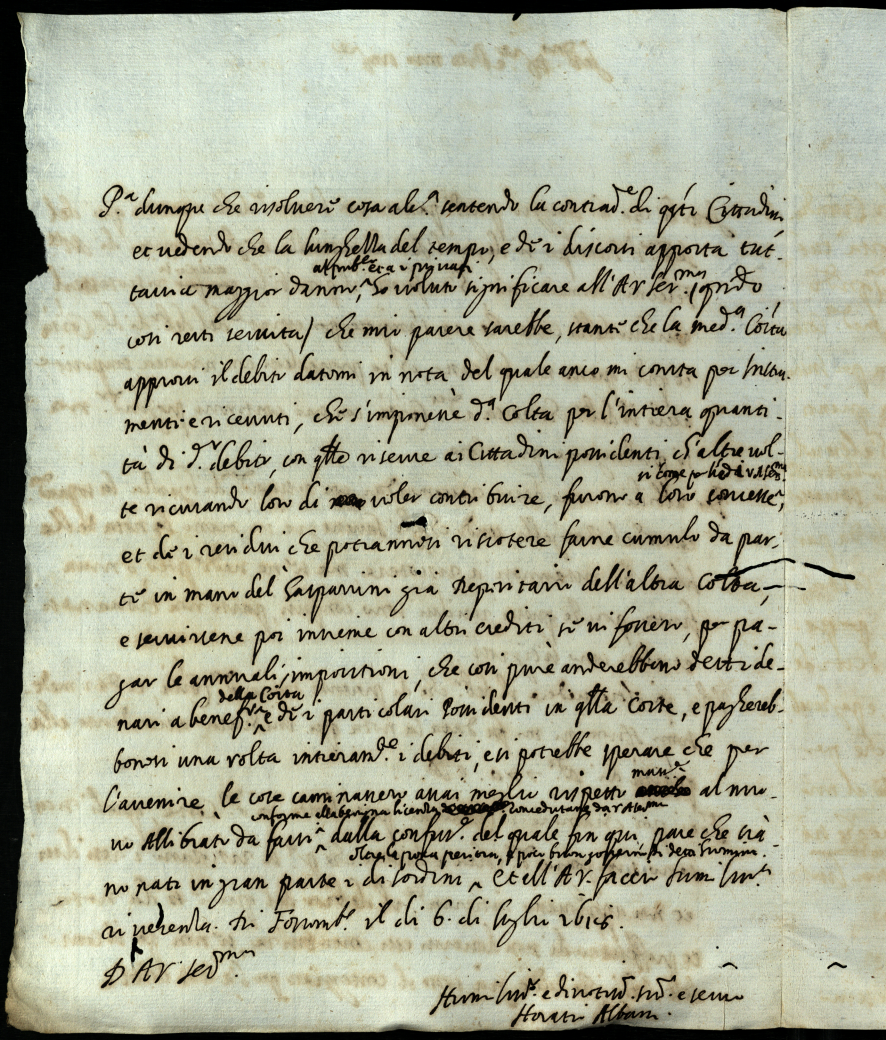 P.ª dunque che risolvere cosa alc.ª sentendo la contrad.e di q̃sti Cittadini
et vedendo che la lunghezza del tempo, e de i discorsi apporta tut-
tavia maggior danno, ho voluto significare all'A.V. Ser.ma (q̃ndo
così resti servita) che mio parere sarebbe, stante che la med.ª Co'ita
approvi il debito datomi in nota del quale anco mi consta per Instru-
menti e ricevuti, che s'imponesse d.ª Colta per l'intiera quanti-
tà di d.º debito, con q̃lle riserve ai Cittadini possidenti, ch'altre vol-
te ricusando loro di voler contribuire, furono a loro concesse,
et de i residui che potrannosi riscotere farne cumulo da par-
te in mano del Gasparrini già Depositario dell'altra Colta,
e servirsene poi insieme con altri crediti se vi fossero, per pa-
gar le annuali impositioni, che così pure anderebbono detti de-
della Co'ita
nari a benef.º e de i particolari Possidenti in q̃lla Corte, e paghereb-
bonosi una volta intieram.te i debiti, e si potrebbe sperare che per
l'avenire le cose caminassero assai meglio rispetto al nuo-
vo Allibrato da farsi dalla confus.e del quale fin qui pare che sia-
no nati in gran parte i disordini, Et all'A.V. faccio humiliss.ª
riverenza. Di Fossomb.e il dì 6. di luglio 1618.
D. A.V. Ser.ma
Humiliss.º e divotiss.º sud.º e servo
Horatio Albani.